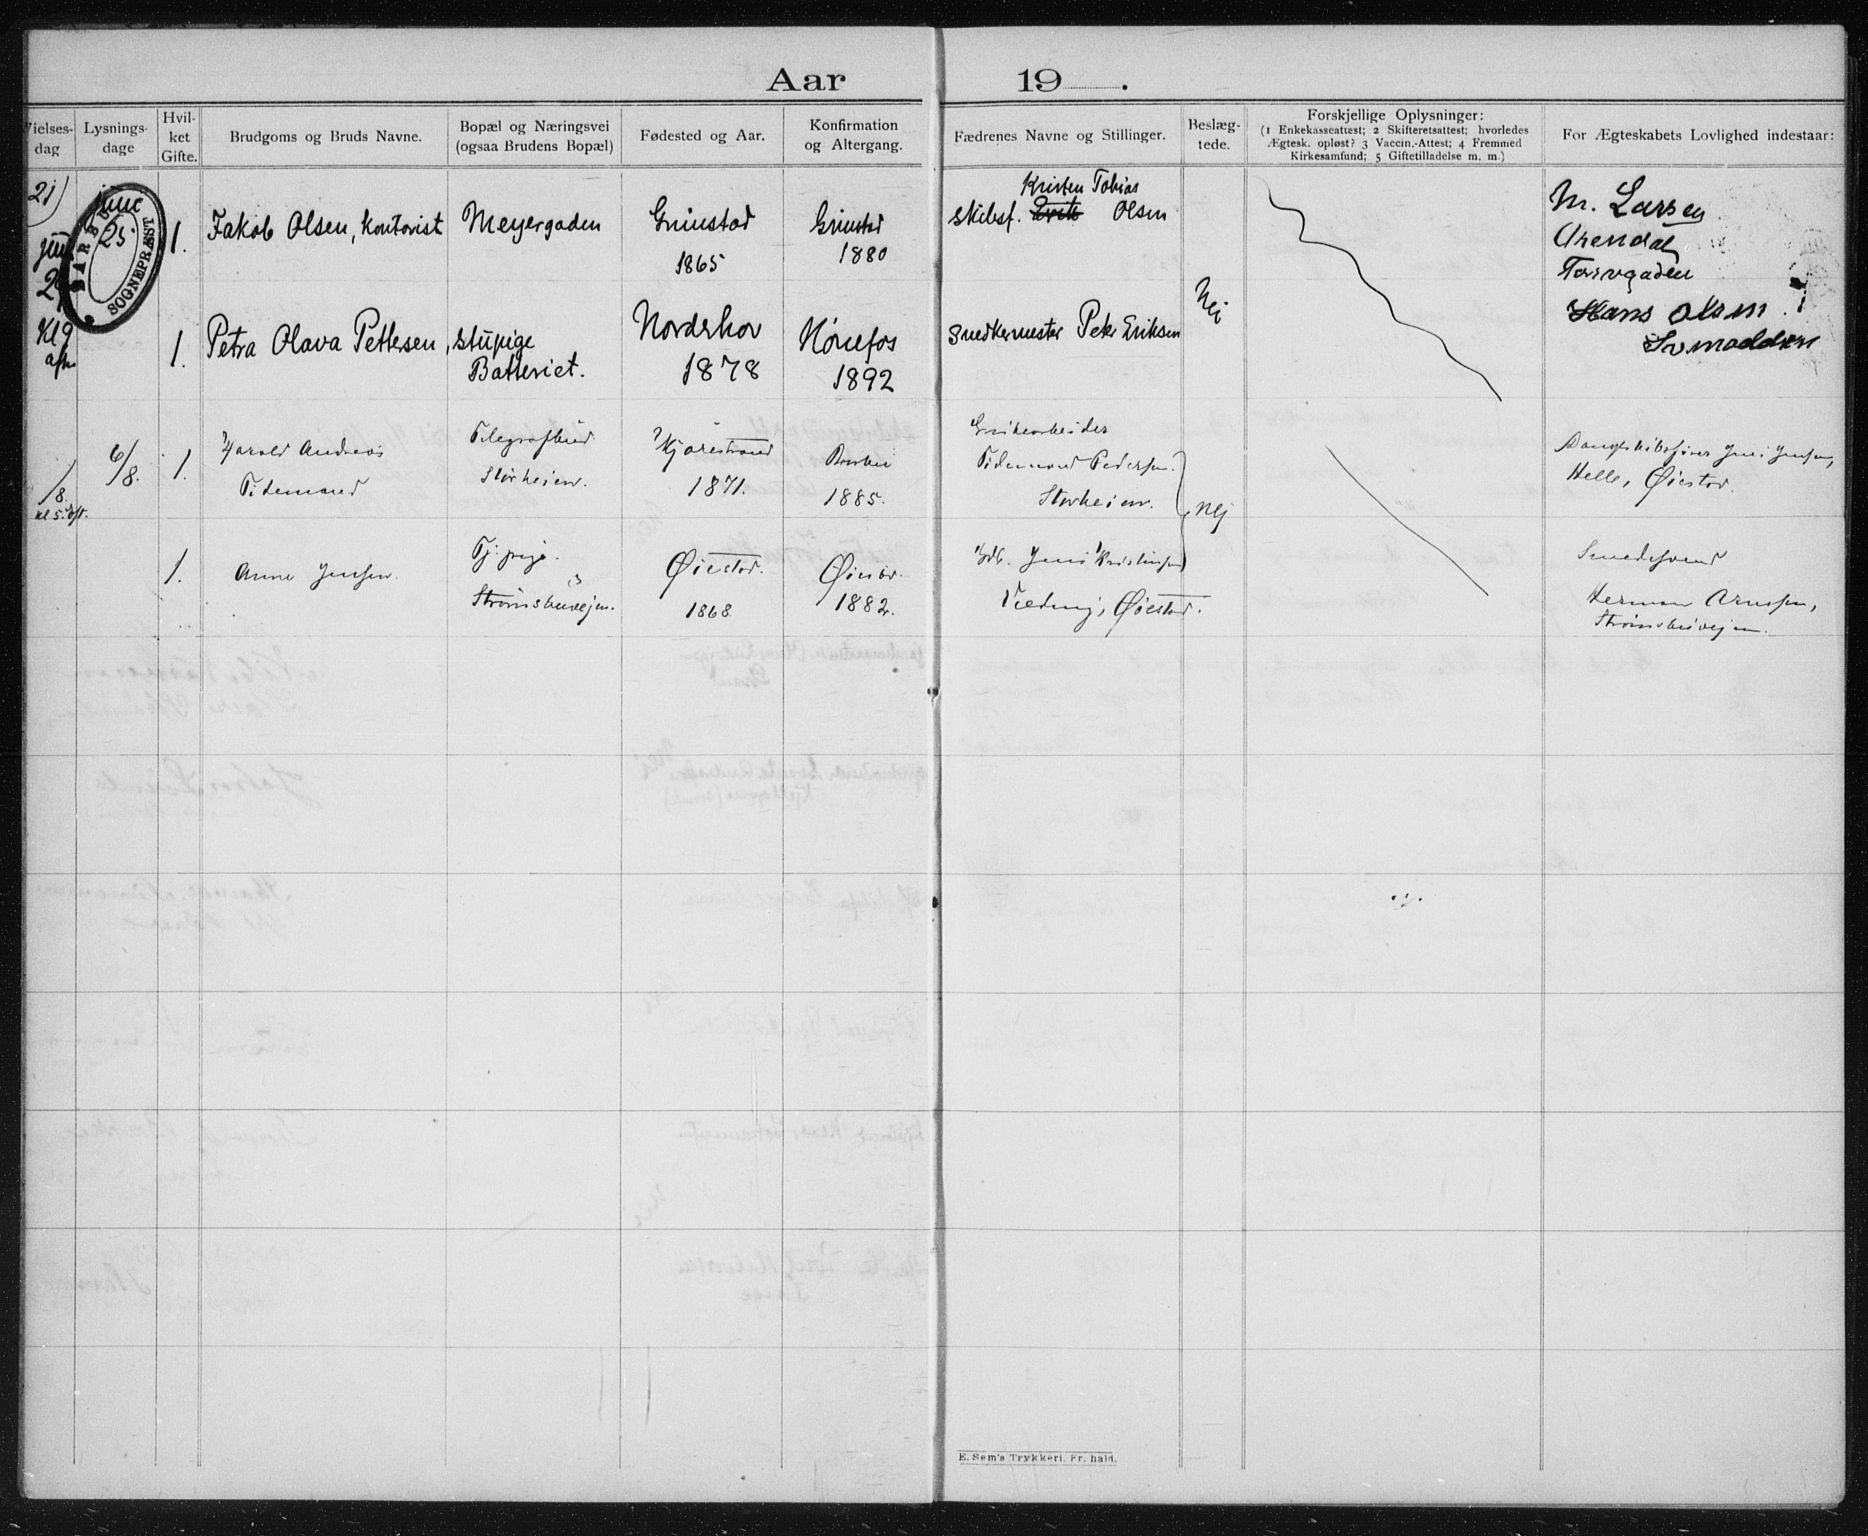 Aar 19 .
Vielses-dag
Lysnings-dage
Hvil-ket Gifte.
Brudgoms og Bruds Navne.
Bopæl og Næringsvei
(ogsaa Brudens Bopæl)
Fødested og Aar.
Konfirmation
og Altergang.
Fædrenes Navne og Stillinger.
Beslæg-tede.
Forskjellige Oplysninger:
(1 Enkekasseattest; 2 Skifteretsattest; hvorledes
Ægtesk. opløst? 3 Vaccin.-Attest; 4 Fremmed
Kirkesamfund; 5 Giftetilladelse m. m.)
For Ægteskabets Lovlighed indestaar:
21)
june
25.
BARBU SOGNEPRÆST
Kl 9
aften
1.
Jakob Olsen, Kontorist
Meyergaden
Grimstad
1865
Grimstad
1880
Kristen Tobias
Skibsf. Erik Olsen
Nei
M. Larsen
Arendal
Torvgaden
1.
Petra Olava Pettersen,
stupige
Batteriet.
Norderhov
1878
Hønefos
1892
Snedkermester Peter Eriksen
Hans Olsen
1/8.
kl 5 Eft.
6/8.
1.
Harald Andreas
Tidemand
Telegrafbud
Storheien.
1871.
Barbu
1885.
Grubearbeider
Tidemand Pedersen
Storheien.
Nej
Dampskibsfører Jens Jensen,
Helle, Øiestad.
1.
Anne Jensen.
Tj. pige.
Strømsbuvejen.
Øiestad.
1868
Øiestad.
1882.
Gdb. Jens Kristensen
Øiestad.
Smedesvend
Herman Arnesen,
Strømsbuvejen.
E. Sem's Trykkeri, Fr.hald.